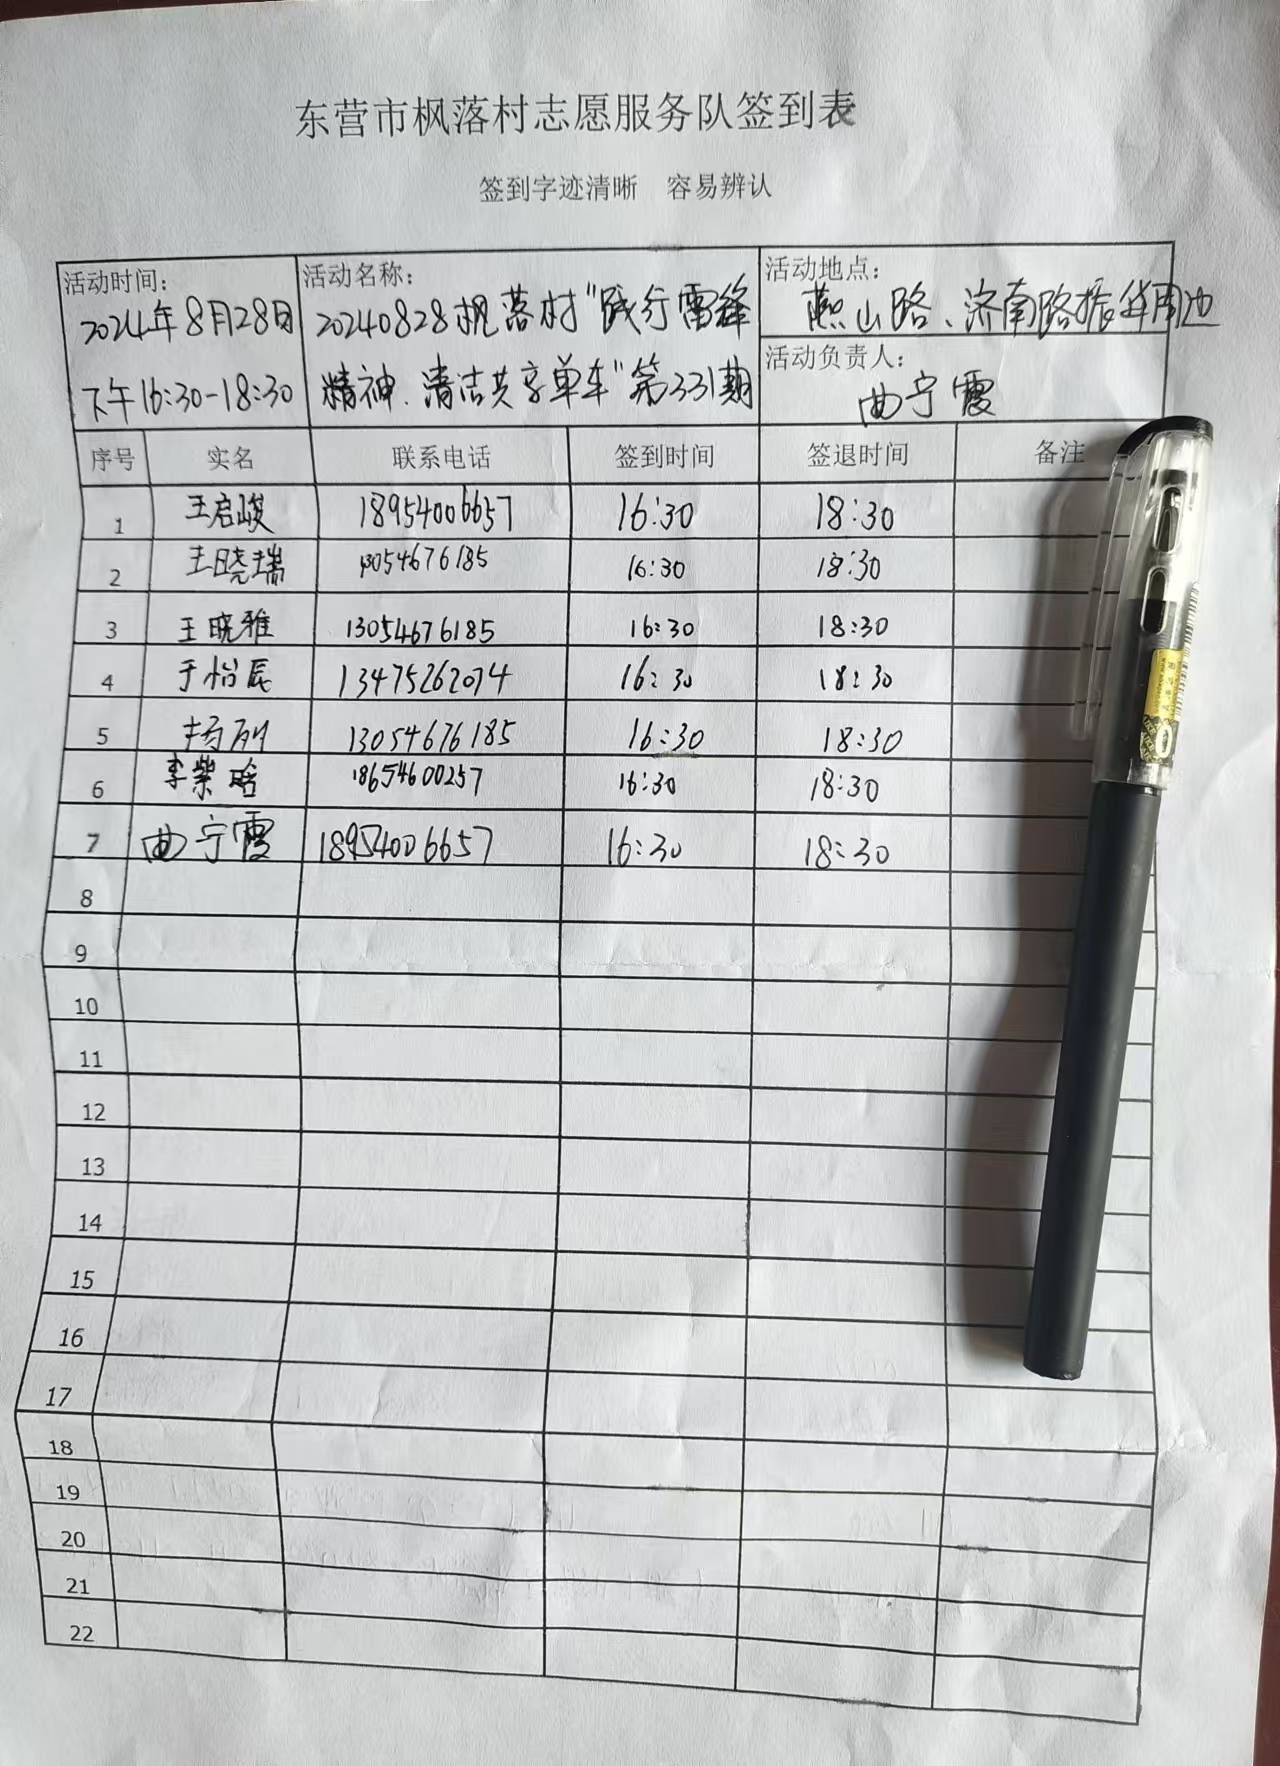 东营市枫落村志愿服务队签到表
签到字迹清晰 容易辨认
活动时间：
2024年8月28日
下午16:30-18:30
活动名称：
20240828枫落村"践行雷锋
精神、清洁共享单车"第331期
活动地点：
燕山路、济南路振华周边
活动负责人：
曲宁霞
序号 实名 联系电话 签到时间 签退时间 备注
1 王启峻 18954006657 16:30 18:30
2 王晓瑞 13054676185 16:30 18:30
3 王晓雅 13054676185 16:30 18:30
4 于怡辰 13475262074 16:30 18:30
5 13054676185 16:30 18:30
6 李紫晗 18654600257 16:30 18:30
7 曲宁霞 18954006657 16:30 18:30
8
9
10
11
12
13
14
15
16
17
18
19
20
21
22